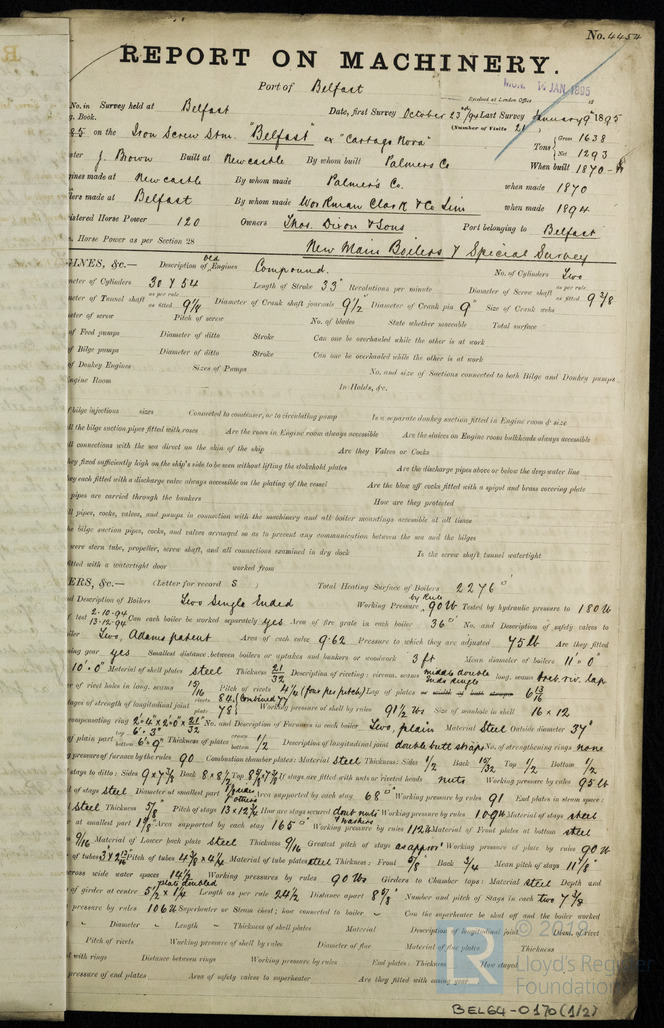 No. 4454
REPORT ON MACHINERY.
Port of Belfast
Received at London Office
MON. 14 JAN. 1895
No. in Survey held at Belfast Date, first Survey October 23rd/94 Last Survey January 9th 1895
Book. (Number of Visits 21)
85 on the Iron Screw Stm. "Belfast" ex "Cartago Nova" Tons Gross 1638 Net 1293
J. Brown Built at Newcastle By whom built Palmers Co When built 1870
ines made at Newcastle By whom made Palmer's Co. when made 1870
lers made at Belfast By whom made Workman Clark & Co Lim when made 1894
istered Horse Power 120 Owners Thos. Dixon & Sons Port belonging to Belfast
Horse Power as per Section 28 New Main Boilers & Special Survey
GINES, &c.— Description of old Engines Compound. No. of Cylinders Two
eter of Cylinders 30 & 54 Length of Stroke 33" Revolutions per minute Diameter of Screw shaft as per rule as fitted 9 3/8
eter of Tunnel shaft as per rule as fitted 9 1/8 Diameter of Crank shaft journals 9 1/2" Diameter of Crank pin 9" Size of Crank webs
eter of screw Pitch of screw No. of blades State whether moveable Total surface
of Feed pumps Diameter of ditto Stroke Can one be overhauled while the other is at work
of Bilge pumps Diameter of ditto Stroke Can one be overhauled while the other is at work
of Donkey Engines Sizes of Pumps No. and size of Suctions connected to both Bilge and Donkey pumps
Engine Room In Holds, &c.
f bilge injections sizes Connected to condenser, or to circulating pump Is a separate donkey suction fitted in Engine room & size
ll the bilge suction pipes fitted with roses Are the roses in Engine room always accessible Are the sluices on Engine room bulkheads always accessible
ll connections with the sea direct on the skin of the ship Are they Valves or Cocks
they fixed sufficiently high on the ship's side to be seen without lifting the stokehold plates Are the discharge pipes above or below the deep water line
they each fitted with a discharge valve always accessible on the plating of the vessel Are the blow off cocks fitted with a spigot and brass covering plate
pipes are carried through the bunkers How are they protected
ll pipes, cocks, valves, and pumps in connection with the machinery and all boiler mountings accessible at all times
the bilge suction pipes, cocks, and valves arranged so as to prevent any communication between the sea and the bilges
were stern tube, propeller, screw shaft, and all connections examined in dry dock Is the screw shaft tunnel watertight
fitted with a watertight door worked from
ERS, &c.— (Letter for record S) Total Heating Surface of Boilers 2276 □'
nd Description of Boilers Two Single Ended Working Pressure by Rule 90 lb Tested by hydraulic pressure to 180 lb
of test 2-10-94 13-12-94 Can each boiler be worked separately yes Area of fire grate in each boiler 36 □' No. and Description of safety valves to
oiler Two, Adams patent Area of each valve 9.62 Pressure to which they are adjusted 75 lb Are they fitted
asing gear yes Smallest distance between boilers or uptakes and bunkers or woodwork 3 ft Mean diameter of boilers 11' 0"
10'. 0" Material of shell plates steel Thickness 21/32 Description of riveting: circum. seams middle double Ends single long. seams treb. riv. lap
er of rivet holes in long. seams 15/16 Pitch of rivets 4 1/16 (four per pitch) Lap of plates 6 13/16
ages of strength of longitudinal joint rivets 84.7 plate 78 (combined) Working pressure of shell by rules 91 1/2 lbs Size of manhole in shell 16 x 12
compensating ring 2'.4" x 2'.0" x 21/32 No. and Description of Furnaces in each boiler Two, plain Material Steel Outside diameter 37"
of plain part top 6'.3" bottom 6'.9" Thickness of plates crown bottom 1/2 Description of longitudinal joint double butt straps No. of strengthening rings none
g pressure of furnace by the rules 90 Combustion chamber plates: Material steel Thickness: Sides 1/2 Back 15/32 Top 1/2 Bottom 1/2
stays to ditto: Sides 9 x 7 3/4 Back 8 x 8 1/2 Top 8 5/8 x 7 3/8 If stays are fitted with nuts or riveted heads nuts Working pressure by rules 95 lb
l of stays Steel Diameter at smallest part Area supported by each stay 68 □" Working pressure by rules 91 End plates in steam space:
l Steel Thickness 5/8" Pitch of stays 13 x 12 3/4 How are stays secured doub nuts & washers Working pressure by rules 109 lb Material of stays steel
er at smallest part 1 7/8" Area supported by each stay 165 □" Working pressure by rules 112 lb Material of Front plates at bottom steel
ss 9/16 Material of Lower back plate Steel Thickness 9/16 Greatest pitch of stays as appros Working pressure of plate by rules 90 lb
r of tubes 3 & 2 13/16 Pitch of tubes 4 3/8 x 4 1/4 Material of tube plates steel Thickness: Front 5/8" Back 3/4 Mean pitch of stays 11 1/8"
cross wide water spaces 14 1/2 plate doubled Working pressures by rules 90 lbs Girders to Chamber tops: Material steel Depth and
s of girder at centre 5 1/2 x 1 1/4 Length as per rule 24 1/2 Distance apart 8 5/8" Number and pitch of Stays in each two 7 3/8
pressure by rules 106 lb Superheater or Steam chest; how connected to boiler Can the superheater be shut off and the boiler worked
Diameter Length Thickness of shell plates Material Description of longitudinal joint Diam. of rivet
Pitch of rivets Working pressure of shell by rules Diameter of flue Material of flue plates Thickness
d with rings Distance between rings Working pressure by rules End plates: Thickness How stayed
pressure of end plates Area of safety valves to superheater Are they fitted with easing gear
© 2019
Lloyd's Register
Foundation
BEL64-0170 (1/2)